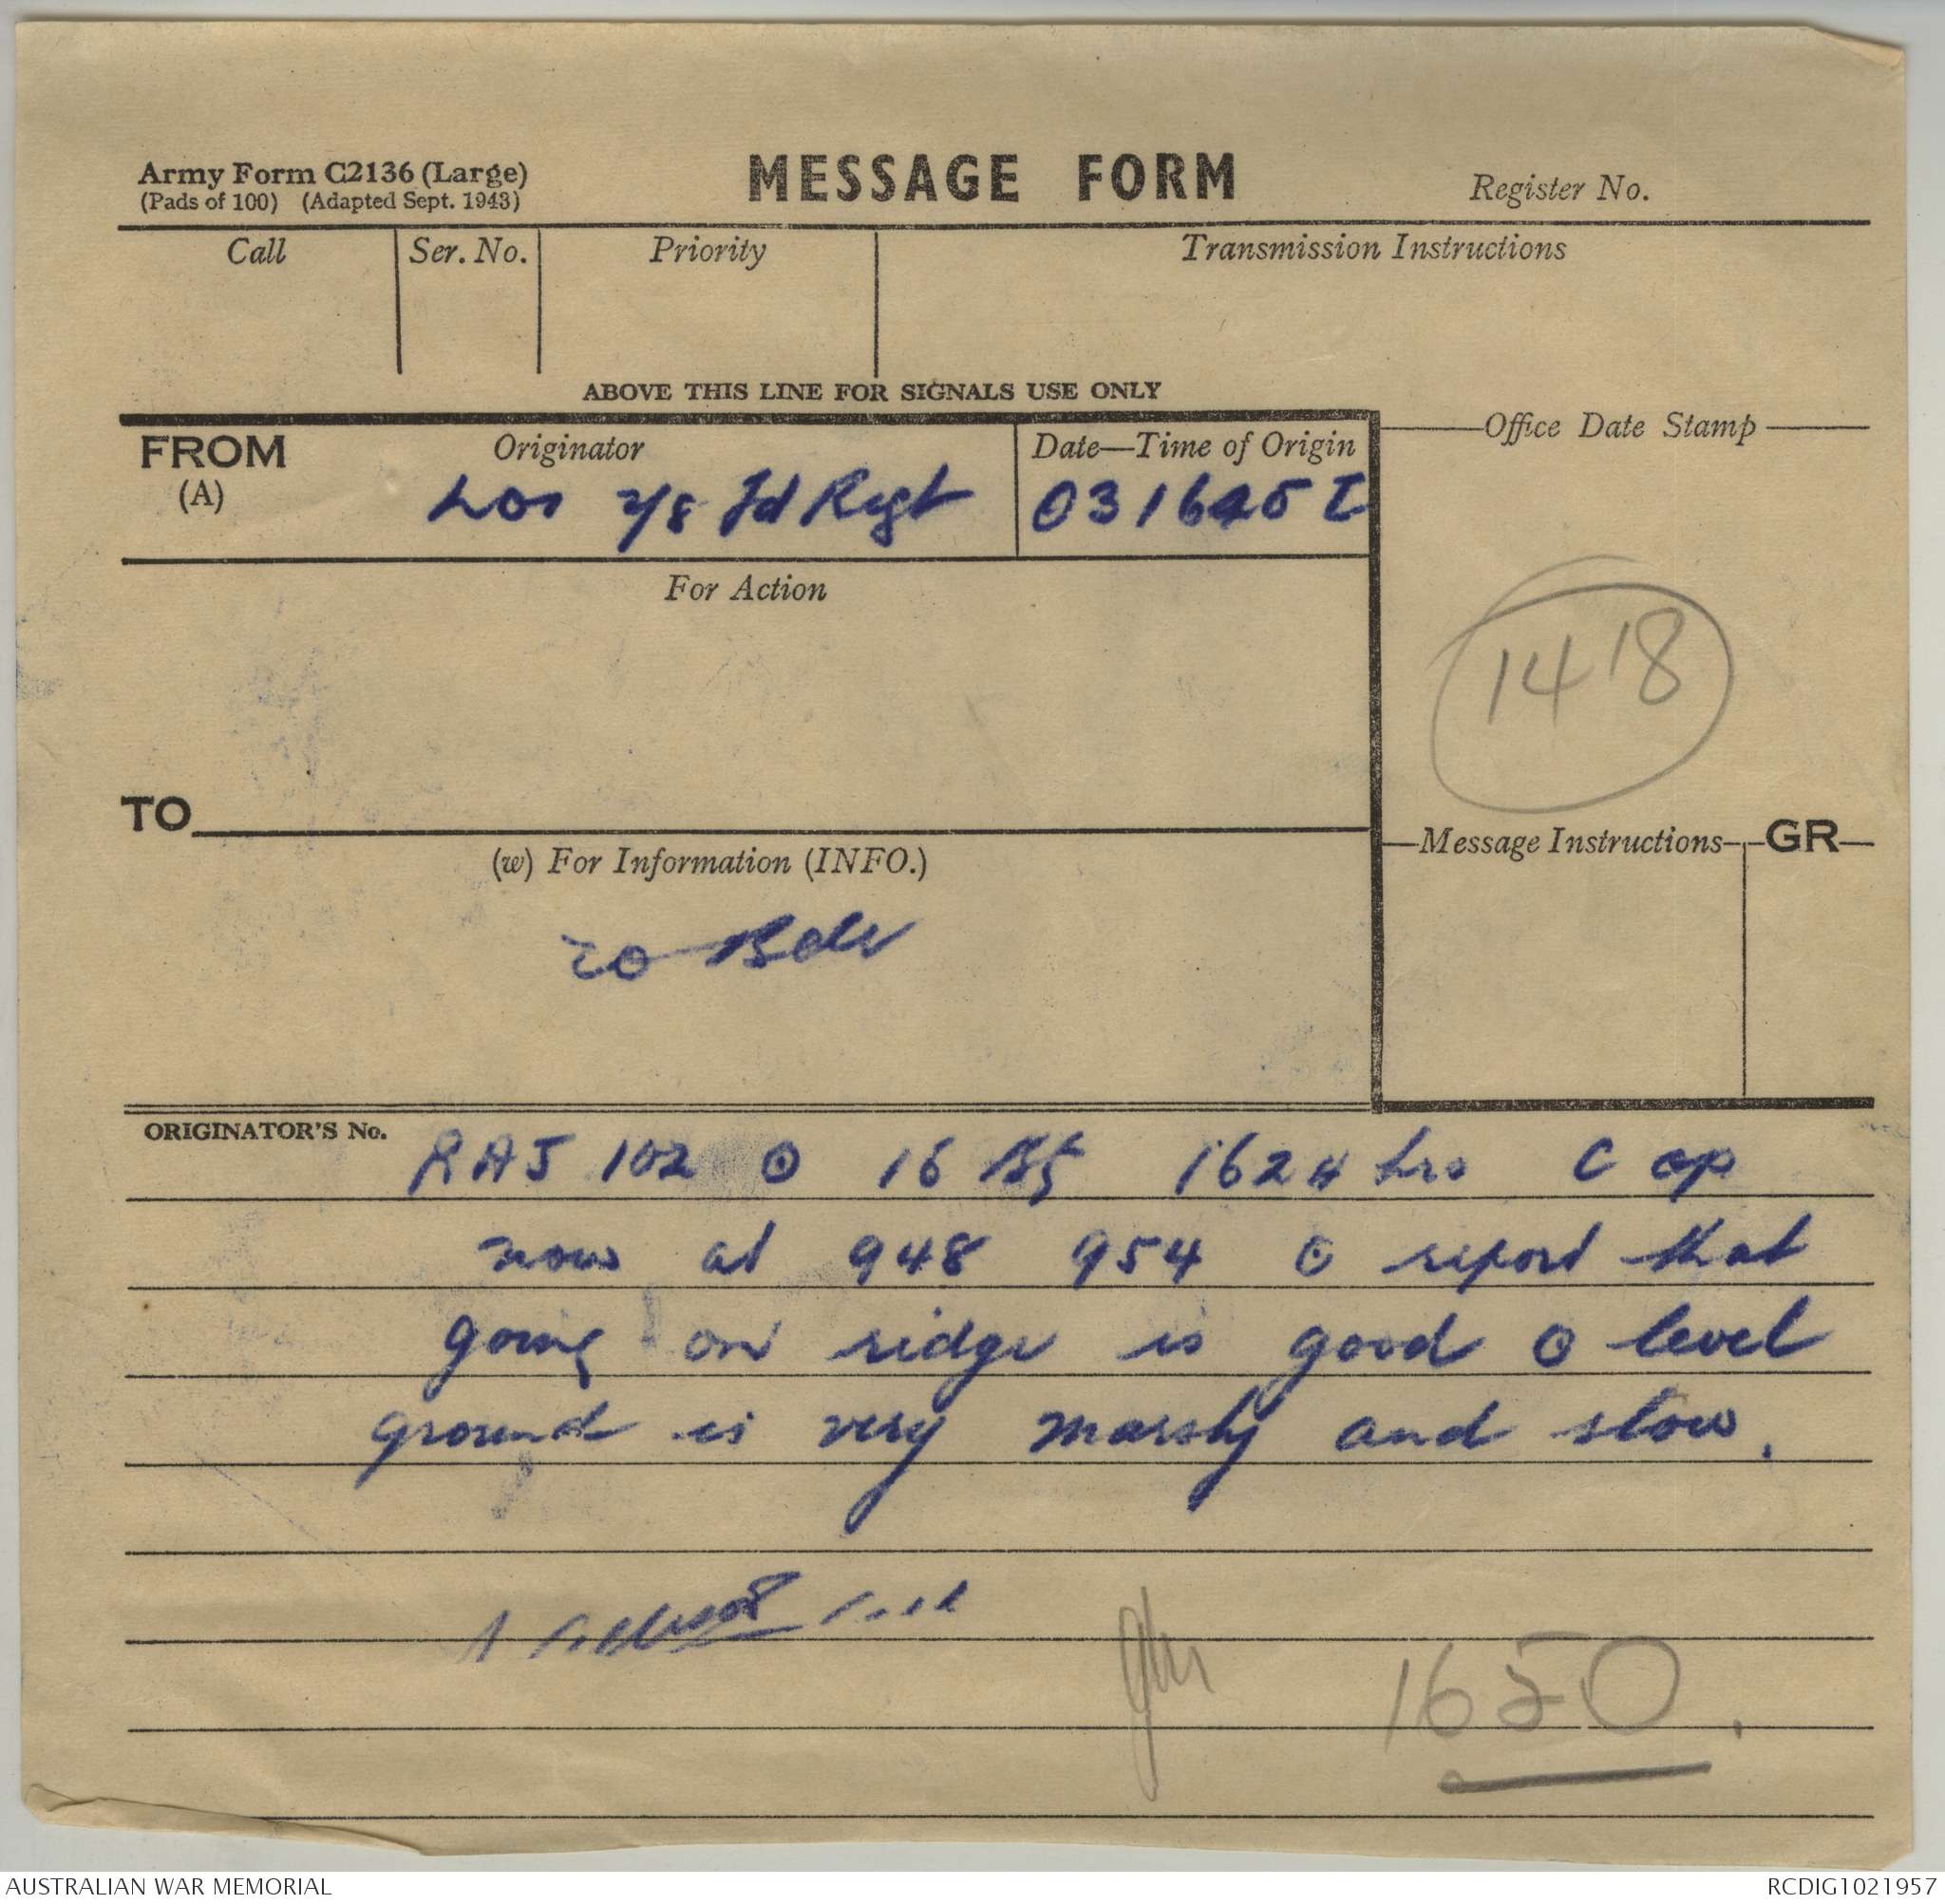 Army Form C2136 (Large)
(Pads of 100) (Adapted Sept. 1943)
MESSAGE FORM
Register No.
Call
Ser. No.
Priority
Transmission Instructions
ABOVE THIS LINE FOR SIGNALS USE ONLY
FROM
(A)
Originator
Date—Time of Origin
LO 2/8 Fd Regt
031645 I
Office Date Stamp
For Action
1418
TO
(w) For Information (INFO.)
Message Instructions
GR
20 Bde
ORIGINATOR'S No.
RAJ 102 ⊙ 16 Bty 1624 hrs C op
now at 948 954 ⊙ report that
going on ridge is good ⊙ level
ground is very marshy and slow.
1650.
AUSTRALIAN WAR MEMORIAL
RCDIG1021957